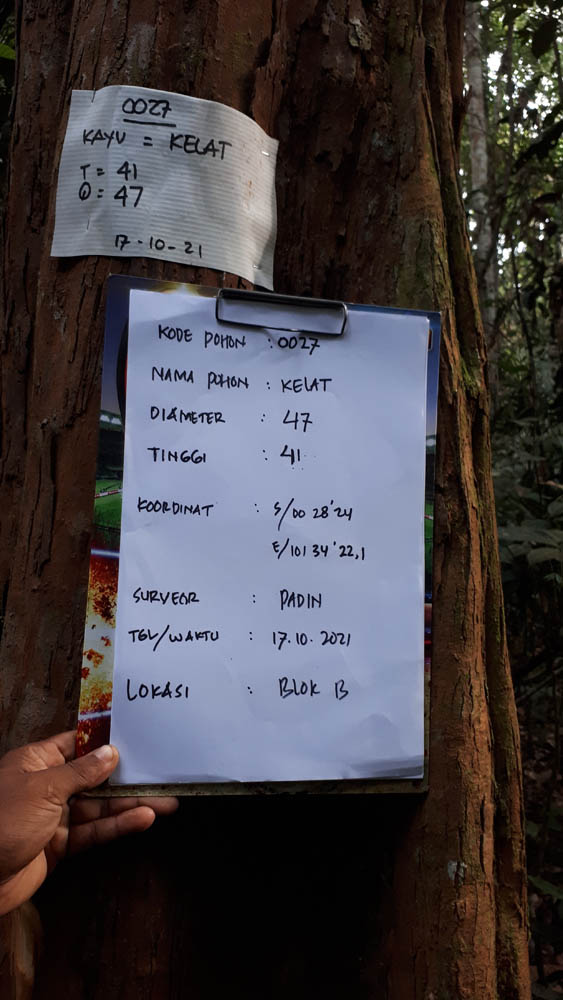 0027
KAYU = KELAT
T = 41
Q = 47
17-10-21
KODE POHON : 0027
NAMA POHON : KELAT
DIAMETER : 47
TINGGI : 41
KOORDINAT : S/00 28'24
E/101 34'22,1
SURVEOR : PADIN
TGL/WAKTU : 17.10.2021
LOKASI : BLOK B